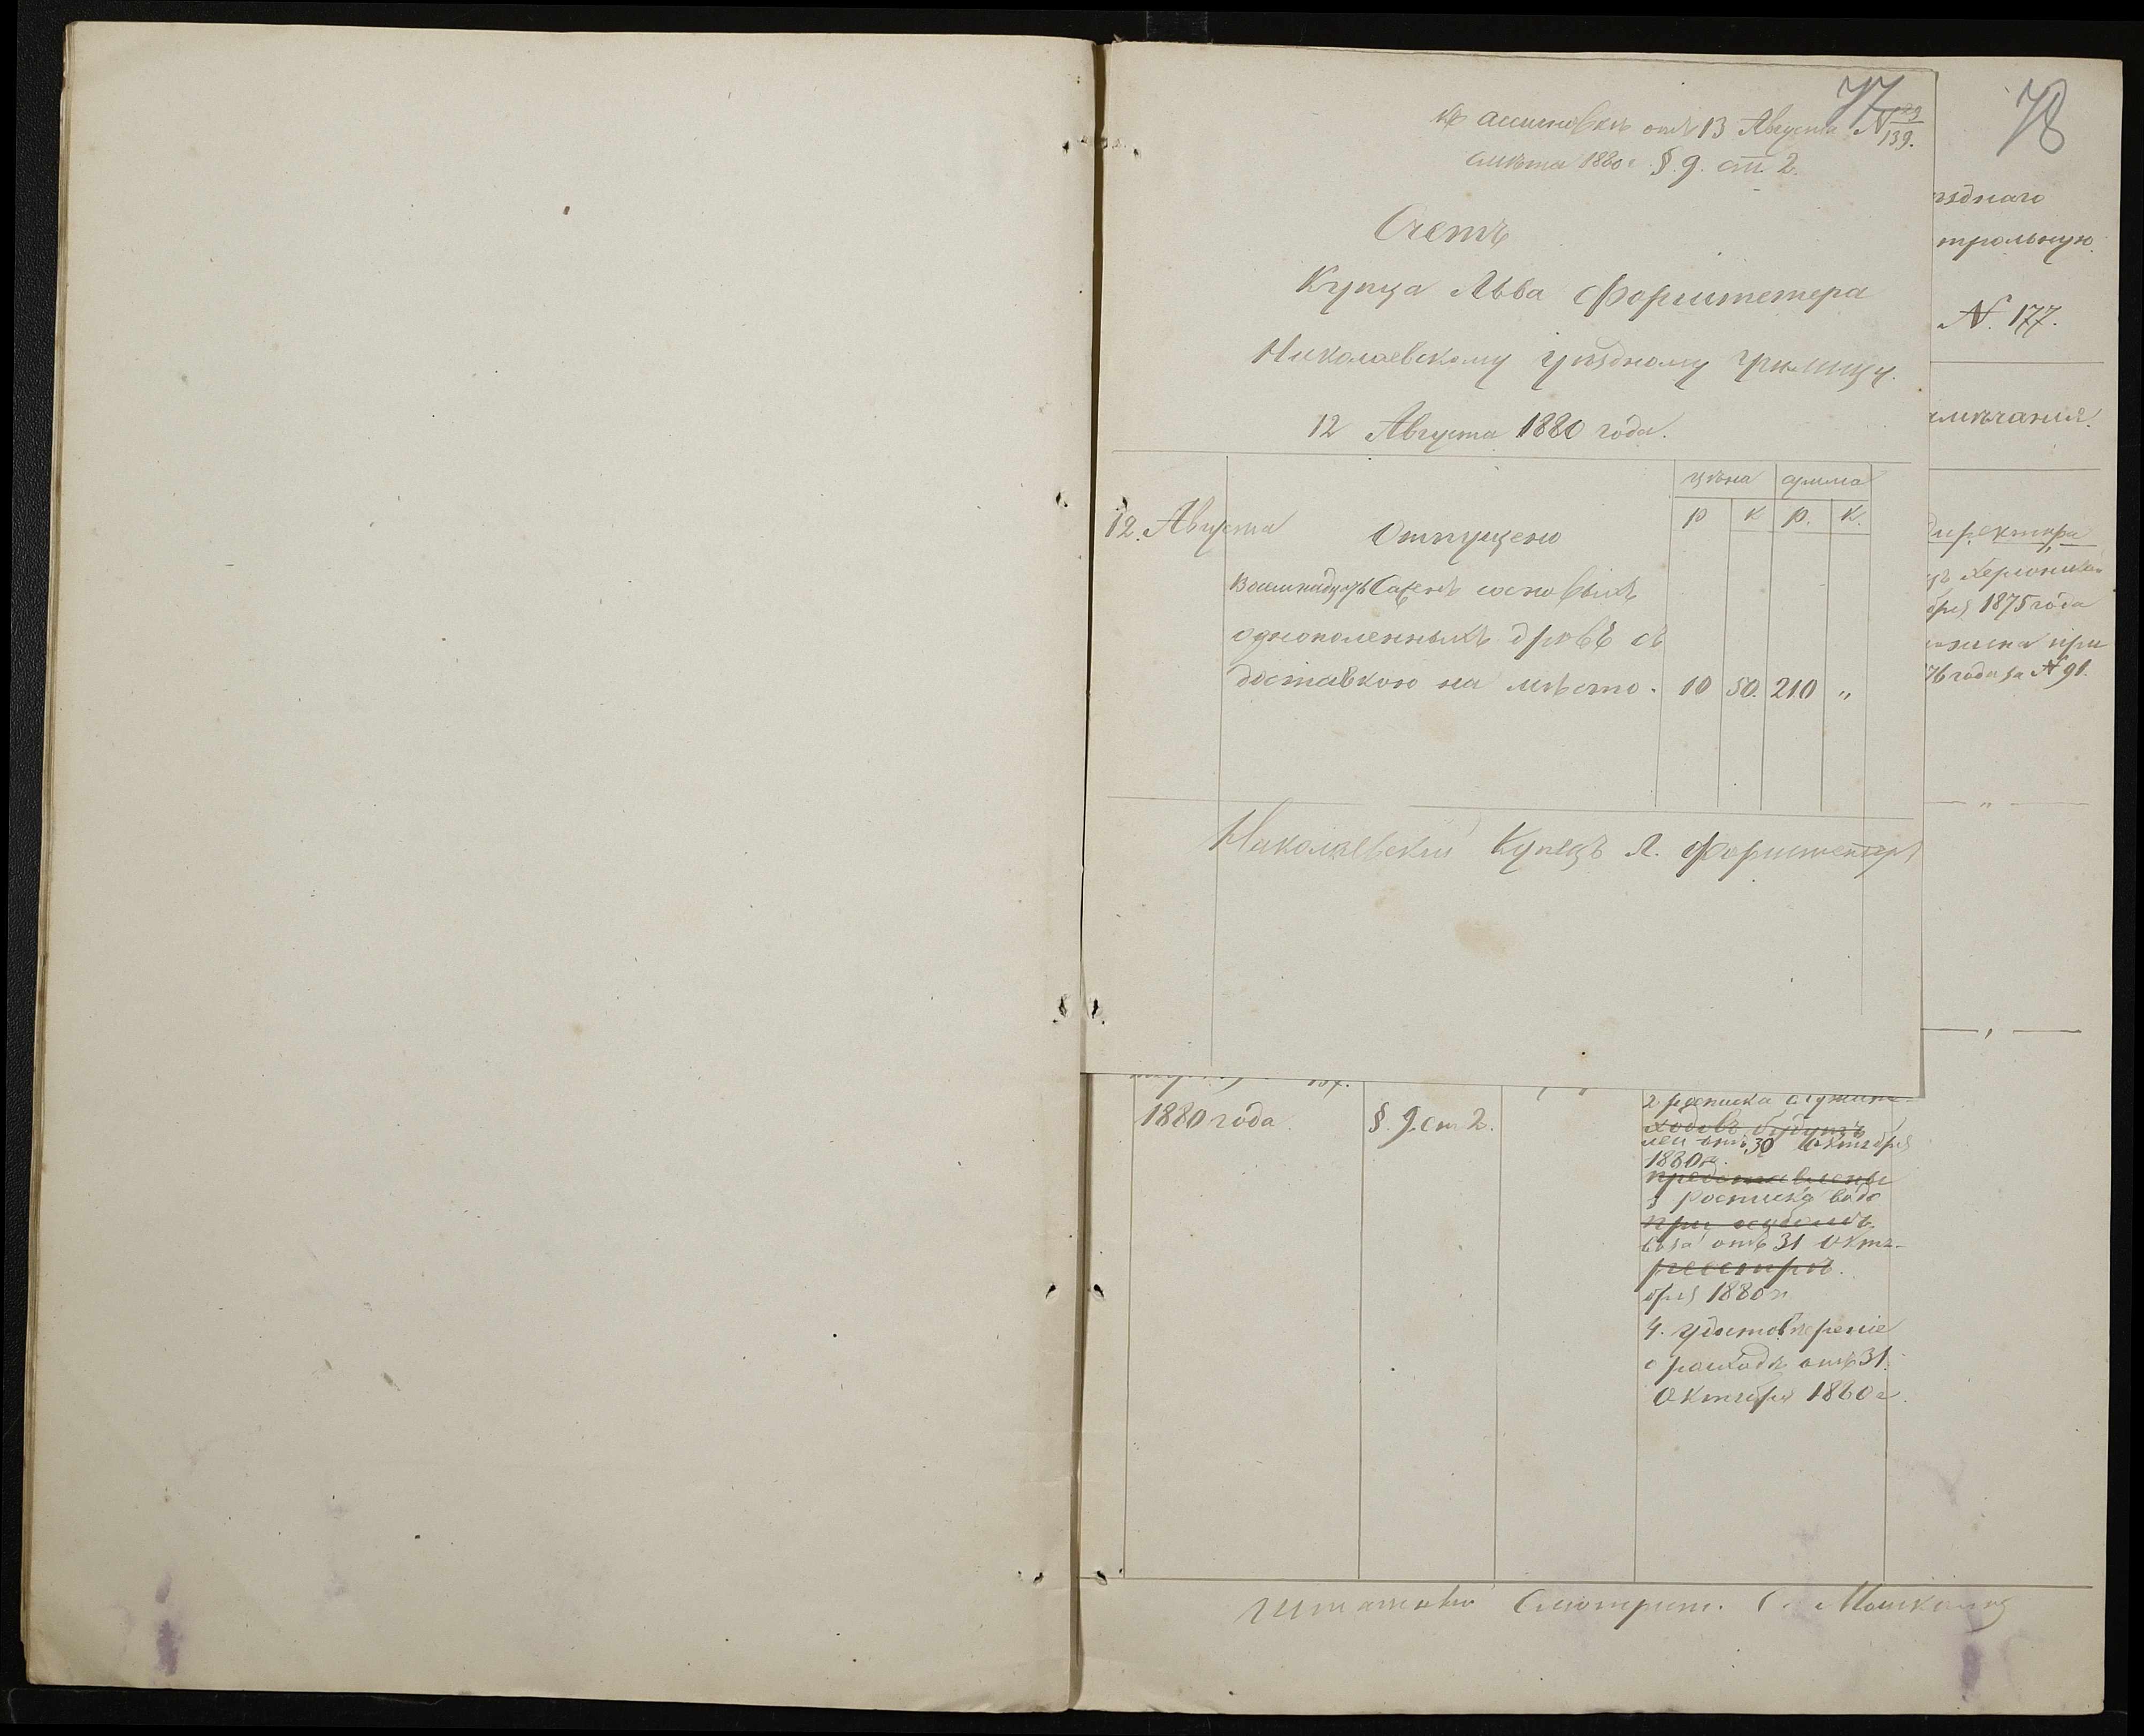 77
къ ассигновкѣ отъ 13 Августа № 139.
смѣта 1880 г. §. 9. ст. 2.
Счетъ
Купца Льва Форштетера
Николаевскому Уѣздному Училищу.
12 Августа 1880 года.
цѣна сумма
р к р. к.
12. Августа Отпущено
Сажень сосновыхъ
однополенныхъ дровъ съ
доставкою на мѣсто. 10 50. 210 "
Николаевскій Купецъ Л. Форштетеръ
78
ѣзднаго
трольную
№. 177.
мѣчанія.
директора
Херсонска
бря 1875 года
при
76 года за № 91.
"
1880 года. §. 9. ст 2.
2. росписка
ходовъ будутъ
отъ 30 Октября
1880 г.
представлены
3 росписка водо
при особомъ
воза отъ 31 Октя-
реестрѣ.
бря 1880 г
4. удостовѣреніе
о расходѣ отъ 31.
Октября 1880 г.
Штатный Смотрит.